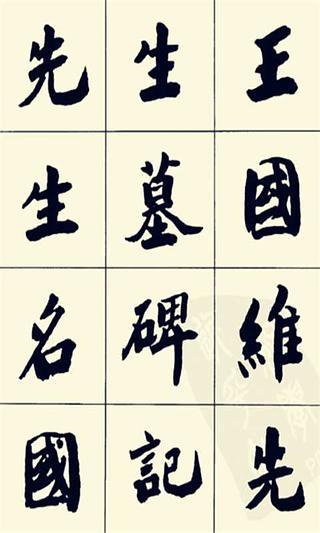 王國維先
生墓碑記
先生名國